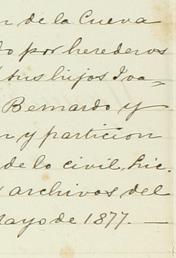 n de la Cueva
do por herederos
sus hijos Iva-
Bernardo y
n y particion
de lo civil, Lic.
archivos del
Mayo de 1877. —